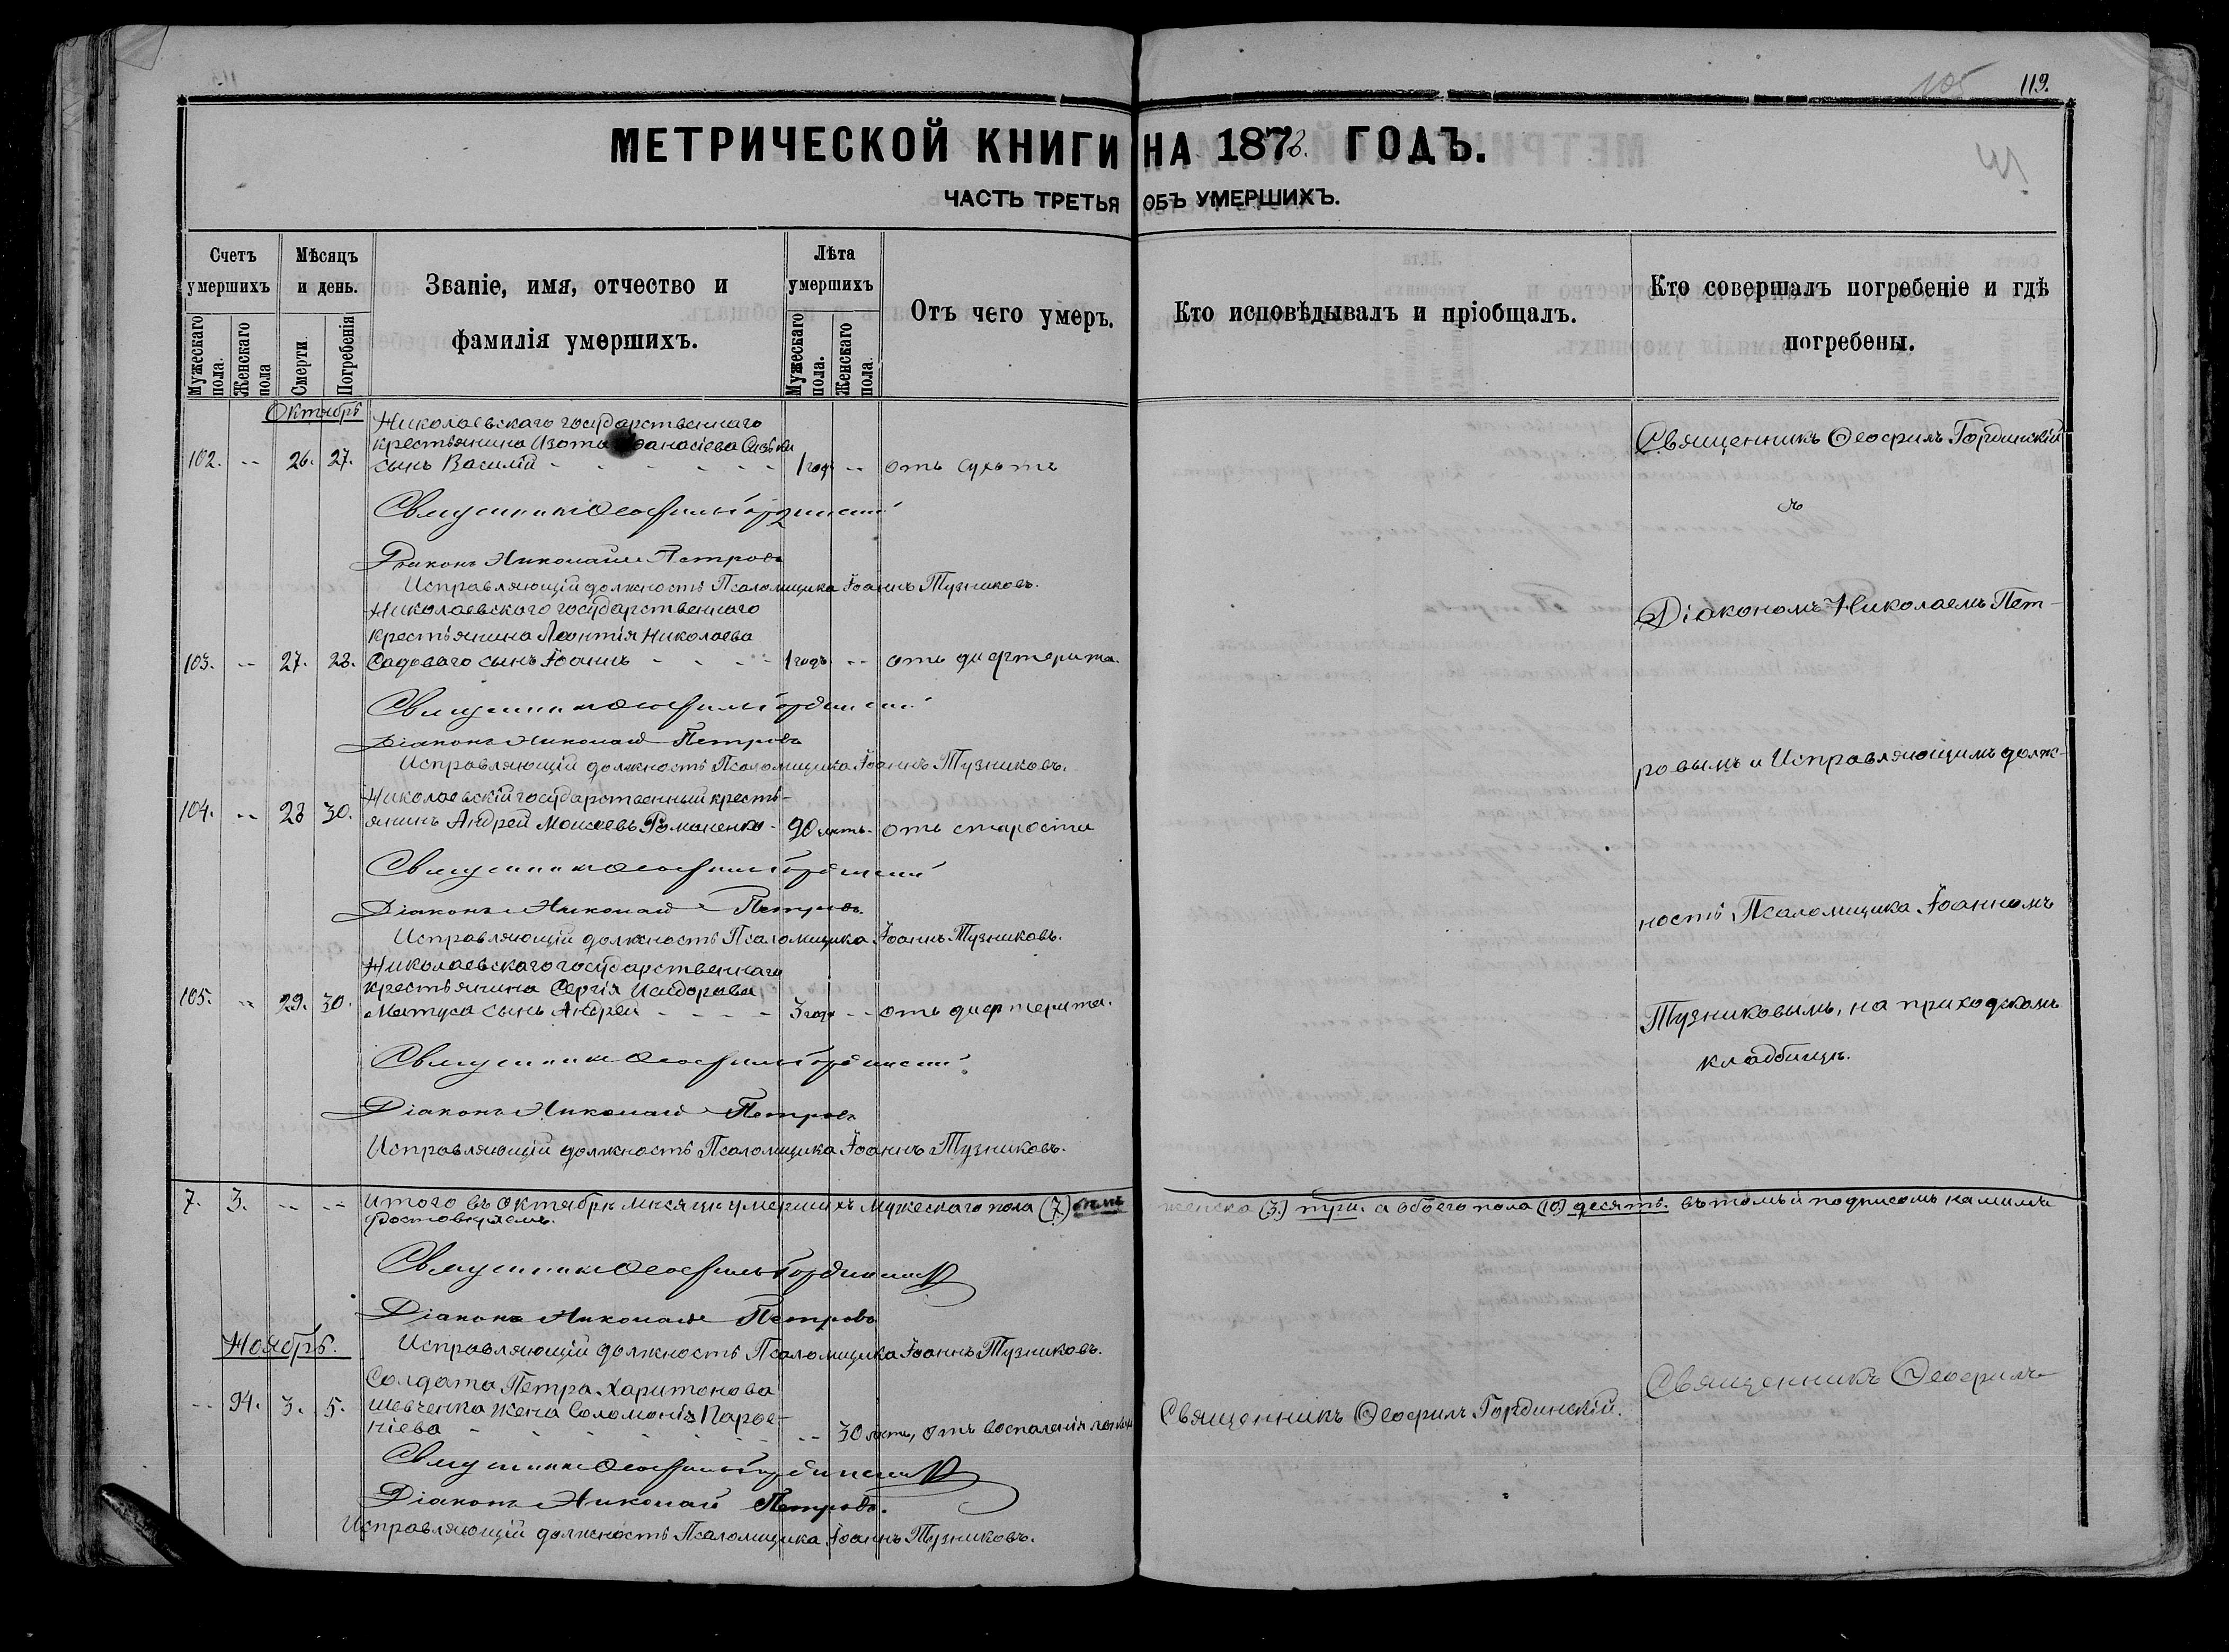 105 113.
МЕТРИЧЕСКОЙ КНИГИ НА 1878. ГОДЪ.
ЧАСТЬ ТРЕТЬЯ ОБЪ УМЕРШИХЪ.
Счетъ умершихъ
Мѣсяцъ и день.
Званіе, имя, отчество и фамилія умершихъ.
Лѣта умершихъ
Отъ чего умеръ.
Кто исповѣдывалъ и пріобщалъ.
Кто совершалъ погребеніе и гдѣ погребены.
Мужескаго пола.
Женскаго пола
Смерти.
Погребенія
Мужескаго пола.
Женскаго пола.
Октябрь
Николаевскаго государственнаго
крестьянина Изота
102. -- 26. 27. сынъ Василій - - - - - - 1 годъ -- отъ сухотъ
Священникъ Ѳеофилъ Гординскій
Діаконъ Николай Петровъ
Исправляющій должность Псаломщика Іоаннъ Тузниковъ.
Николаевскаго государственнаго
крестьянина Леонтія Николаева
103. -- 27. 28. Садоваго сынъ Іоаннъ - - - - 1 годъ -- отъ дифтерита.
Священникъ Ѳеофилъ Гординскій
Діаконъ Николай Петровъ
Исправляющій должность Псаломщика Іоаннъ Тузниковъ.
Николаевскій государственный кресть-
104. -- 28 30. янинъ Андрей Моисеевъ Романенко - 90 лѣтъ - отъ старости
Священникъ Ѳеофилъ Гординскій
Діаконъ Николай Петровъ
Исправляющій должность Псаломщика Іоаннъ Тузниковъ.
Николаевскаго государственнаго
крестьянина Сергія Исидорова
105. -- 29. 30. Матуса сынъ Андрей - - - - 3 года -- отъ дифтерита.
Священникъ Ѳеофилъ Гординскій
Діаконъ Николай Петровъ
Исправляющій должность Псаломщика Іоаннъ Тузниковъ.
Священникъ Ѳеофилъ Гординскій
съ
Діакономъ Николаемъ Пет-
ровымъ и Исправляющимъ долж-
ность Псаломщика Іоанномъ
Тузниковымъ, на приходскомъ
кладбищѣ.
7. 3. -- -- Итого въ Октябрѣ мѣсяцѣ умершихъ мужескаго пола (7.) семь женска (3.) три. а обоего пола (10) десять. въ томъ и подписомъ нашимъ
удостовѣряемъ.
Священникъ Ѳеофилъ Гординскій
Діаконъ Николай Петровъ
Исправляющій должность Псаломщика Іоаннъ Тузниковъ.
Ноябрь.
Солдата Петра Харитонова
-- 94. 3. 5. Шевченка жена Соломонія Парѳе-
ніева - - - - - - -- 30 лѣтъ, отъ воспаленія легкихъ Священникъ Ѳеофилъ Гординскій. Священникъ Ѳеофилъ
Священникъ Ѳеофилъ Гординскій
Діаконъ Николай Петровъ.
Исправляющій должность Псаломщика Іоаннъ Тузниковъ.